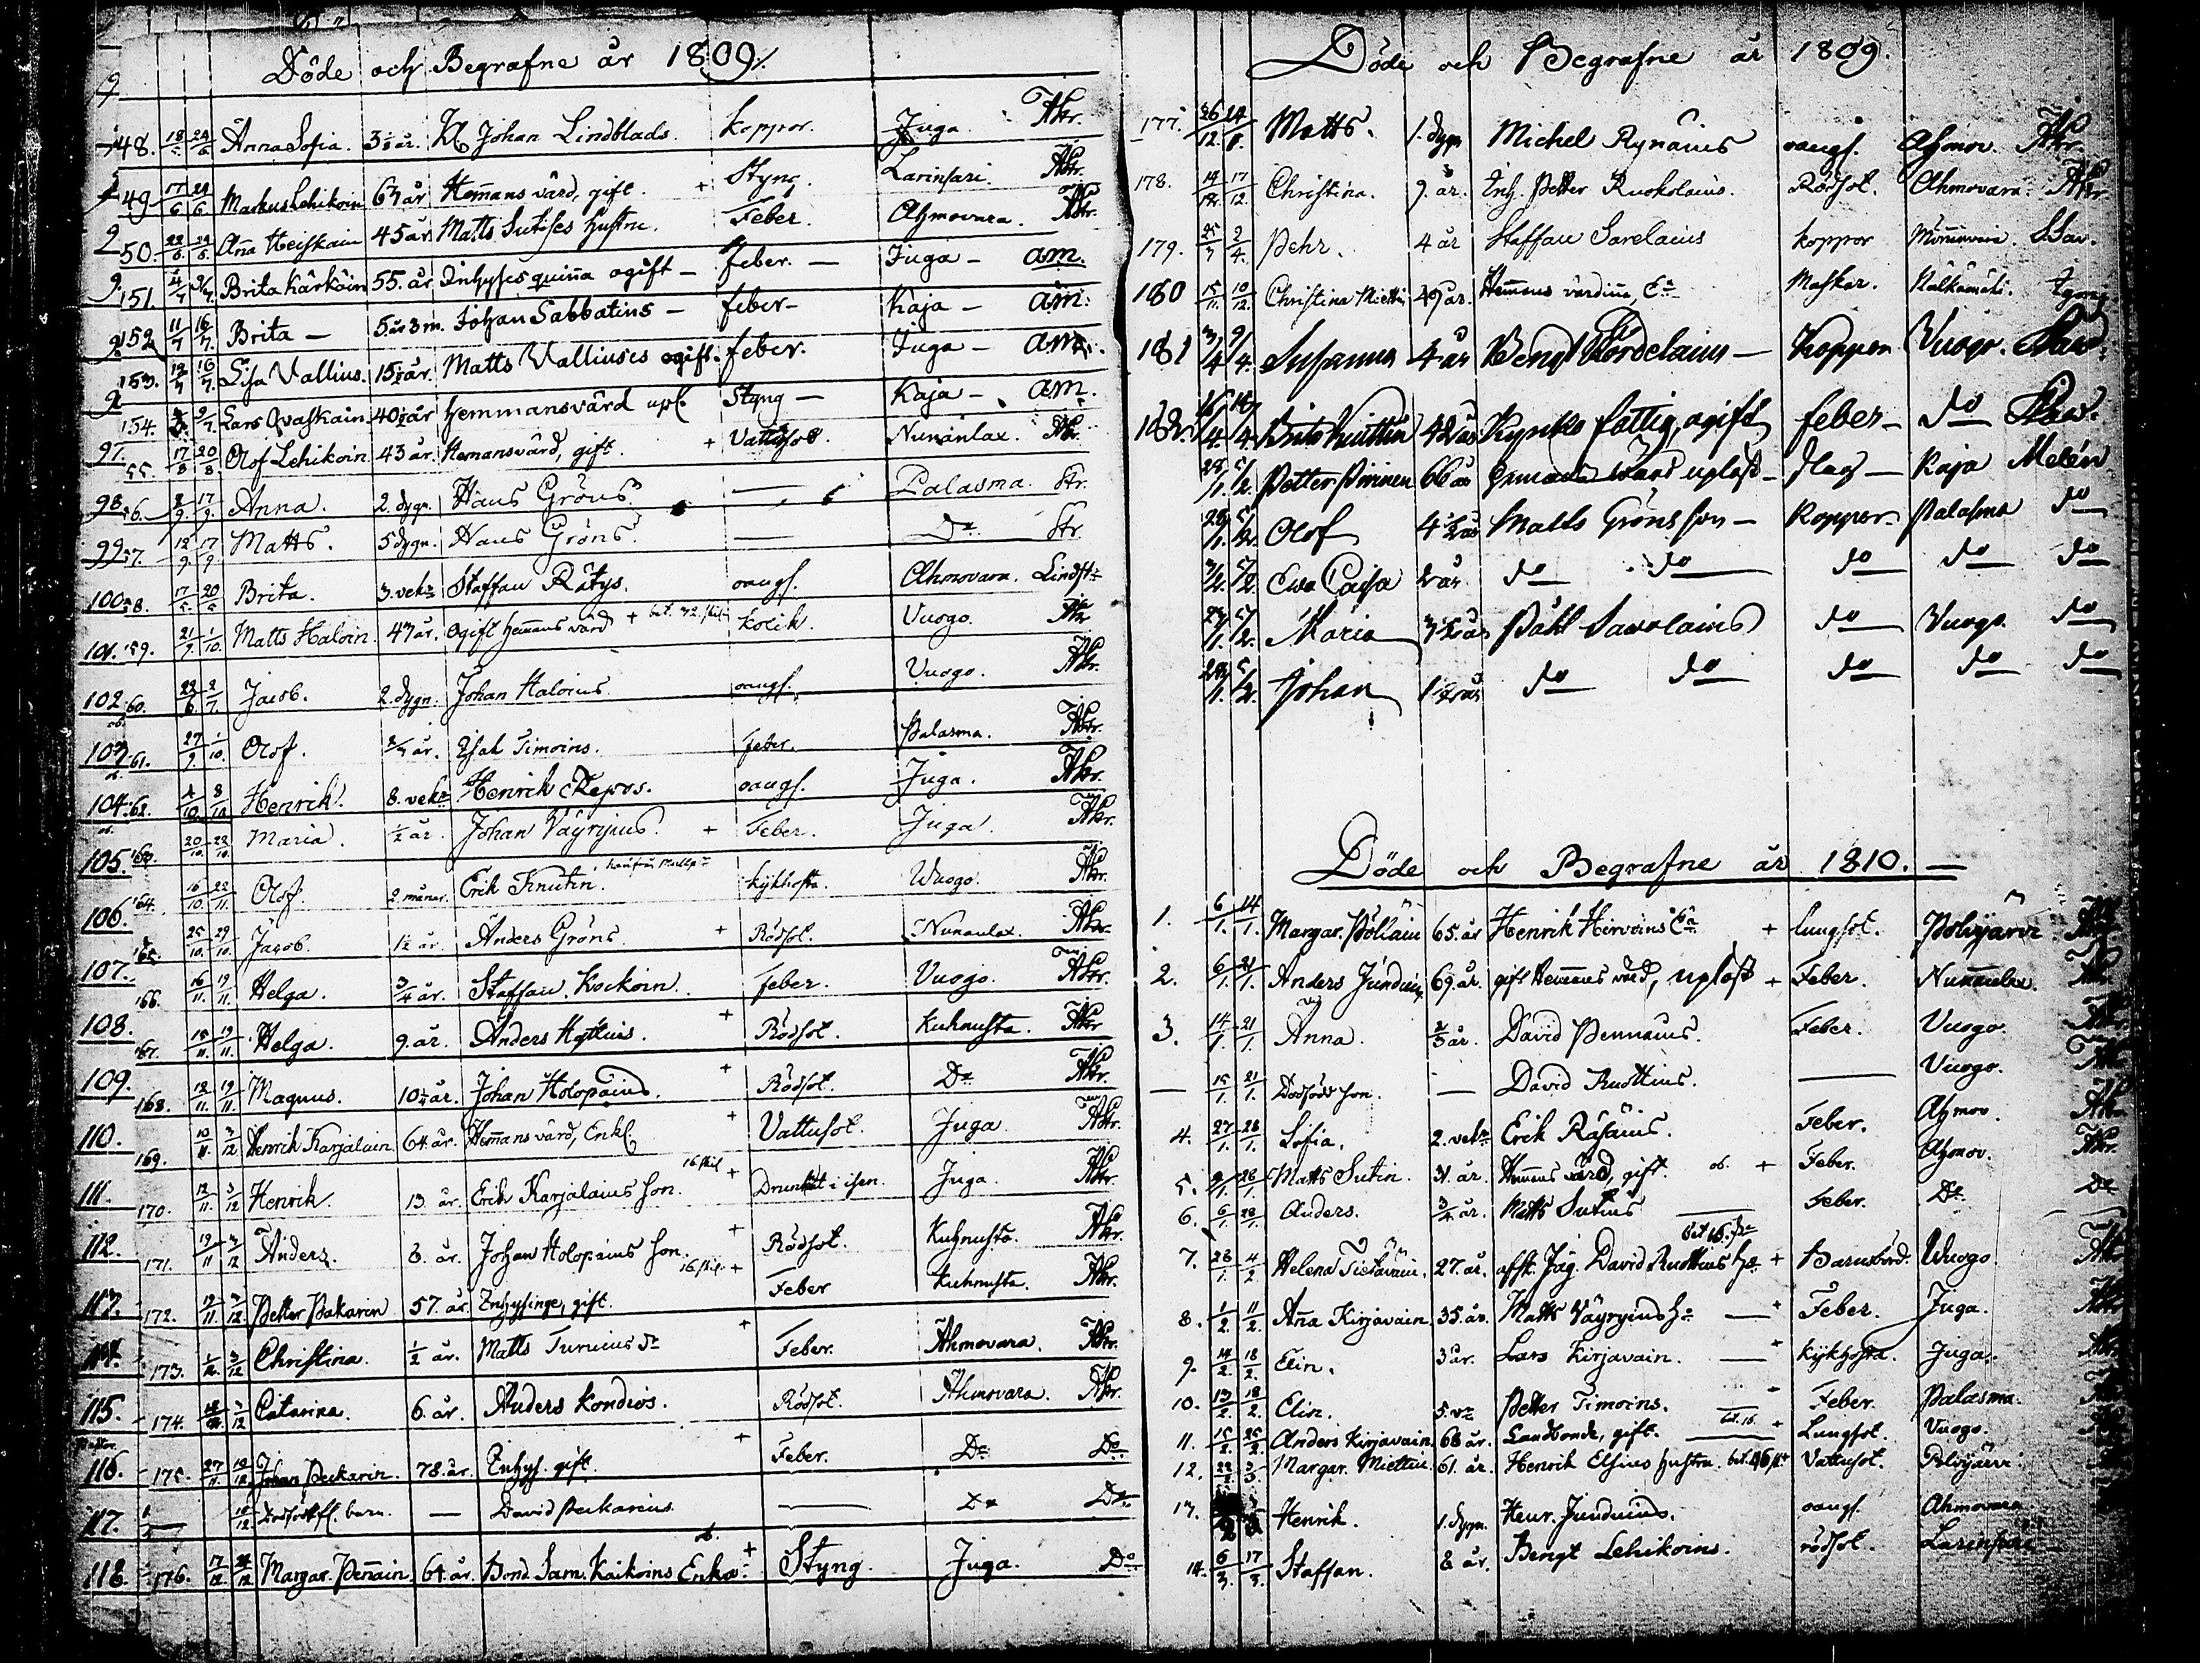 Döde och Begrafne år 1809.
148. 18 24/6 Anna Sofia. 3½ år. Johan Lindblads. koppor. Juga. Akr.
149 17/6 24/6 Markus Lehikoin 63 år Hemans värd, gift. + Styng. Larinsari. Akr.
150. 22/6 24/6 Ana Heiskain 45 år Matts Hustru. Feber. Ahmovara. Akr.
151. 4/7 9/7 Brita Kärkäin 55. år Inhyses quina ogift – feber. – Juga – am.
152 11/7 16/7 Brita – 5 år 3 m. Johan Sabbatius – feber – Kaja – am.
153. 12/7 16/7 Lisa Vallius. 15½ år. Matts Valliuses ogift. feber. Juga – am.
154. 9/7 Lars Qvaskain 40½ år hemmansvärd upl. Styng – Kaja – am.
97. 55 17/8 20/8 Olof Lehikoin 43 år. Hemansvärd, gift. + Vattusot. Nunänlax. Akr.
98 56. 8/9 17/9 Anna. 2. dygn. Hans Gröns. — Palasma. Str.
99 57. 12/9 17/9 Matts. 5 dygn. Hans Gröns. — Do Str.
100. 58. 17 20 Brita. 3. vekr Staffan Rätys. oangf. Ahmovara. Lindst
101. 159. 21/9 1/10 Matts Haloin. 47 år. ogift hemans värd + bet. 32. skil. kolik. Vuogo. Akr
102 60. 22/6 2/7 Jacob. 2. dygn. Johan Haloins oangf. Vuogo. Akr.
103 61. 27/9 1/10 Olof. ¾ år. Esak Timoins. feber. Palasma. Akr.
104. 62. 4/10 8/10 Henrik. 8. vekr Henrik Repos. oangf. Juga. Akr.
105. 163. 20/10 22/10 Maria. ½ år. Johan Väyryius. + Feber. Juga. Akr.
106. 164. 16/10 22/11 Olof. 2 månar. Erik Knutin. kikhosta. Wuogo. Akr.
107. 165. 25/10 29/10 Jacob. 1½ år. Anders Gröns. + Rödsot. Nunanlax. Akr.
166. 16/11 19/11 Helga. ¾ år. Staffan Kockoin. Feber. Vuogo. Akr.
108. 167. 15/11 19/11 Helga. 9. år. Anders Hyttius. + Rödsot. Kuhnusta. Akr
109. 168. 12/11 19/11 Magnus. 10¼ år. Johan Holopains. + Rödsot. Do Akr.
110. 169. 10/11 3/12 Henrik Karjalain 64. år. Hemans värd, Enkl. + Vattusot. Juga Akr.
111. 170. 12/11 3/12 Henrik. 13. år. Erik Karjalains son. 16. skil + Drunknat i isen. Juga. Akr.
112. 171. 19/11 3/12 Anders. 8. år. Johan Holopains son. + Rödsot. Kuhnusta. Akr.
113. 172. 12/11 3/12 Petter Pakarin 57. år. Inhysinge, gift. 16. skil. + Feber Kuhnusta. Akr.
114. 173. 3/12 Christina. ½ år. Matts Turuius Dr + Feber. Ahmovara. Akr.
115. 174. 3/12 Catarina. 6. år. Anders Kondios. Rödsot. Ahmovara. Akr.
116. 175. 27/11 10/12 Johan Peckarin. 78. år. Inhys. gift. + Feber. Do Do
117. 10/12 Dödfödt barn. — David Peckarius — Do Do
118. 176. 17/12 24/12 Margar. Penain 64. år. Bond. Sam. Kaikoins Enka. + Styng. Juga. Do
Döde och Begrafne år 1809.
177. 26/12 Matts. 1. dygn Michel Rynäins oangf. Ahmov. Akr
178. 14/12 17/12 Christina. 9. år. Inh. Petter Ruokolains. Rödsot. Ahmovara. Akr
179. 25/3 2/4 Pehr. 4 år Staffan Sarelains koppor S.Sav.
180 15/11 10/12 Christina Miettin 49 år. Hemans värdina, Ea Maskar.
181 3/4 9/4 Susanna 4 år Bengt Kordelains – Koppor Vuogo.
182. 14/4 Brita 42 år fattig, ogift feber – do
5/2 Petter Pirinen 66 år värd uplast – Slag – Kaja Melén
28/1 5/2 Olof 4½ år Matts Gröns son – Koppor – Palasma do
5/2 Ewa Caisa 2 år do do do do do
5/2 Maria 3½ år Påhl Savolains do Vuogo do
5/2 Johan 1½ år do do do do do
Döde och Begrafne år 1810. —
1. 6/1 14/1 Margar. Pöliäin 65. år Henrik Hirvoins Ea + lungsot. Polvijärvi Akr
2. 6/1 21/1 Anders Junduin 69. år. gift Hemans värd, uplast + Feber. Nunanlax. Akr
3. 14/1 21/1 Anna. ⅔ år. David Pennains. Feber. Vuogo. Akr
— 15/1 21/1 Dödföd son. — David Ruottius. — Vuogo. Akr
4. 27/1 28/1 Sofia. 2. vekr Erik Räsäins. Feber. Ahmov. Akr
5. 28/1 Matts Sutin. 31. år. Hemans värd, gift. ob. + Feber. Ahmov. Akr.
6. 6/1 28/1 Anders. ¾ år. Matts Sutins Feber. Do Do
7. 28/1 4/2 Helena Tietäväin. 27. år. afsk. Jäg. David Ruottius hu + bet 16. Barnsbörd. Wuogo. Akr
8. 1/2 11/2 Ana Kirjavain 35. år. Matts Väyryius hu — + Feber. Juga. Akr
9. 14/2 18/2 Elin. 3 år. Lars Kirjavain. — + kikhosta. Juga. Akr
10. 13/2 18/2 Elin. 5. vr Petter Timoins. — Feber. Palasma. Akr
11. 15/2 25/2 Anders Kirjavain. 68 år. Landbonde, gift. bet. 16. + Lungsot. Vuogo. Akr
12. 22/2 3/3 Margar. Miettin. 61. år. Henrik Elsius hustru. bet. Vattusot. Polvijärvi.
13. Henrik. 1. dygn. Henr. Junduins. oangf. Ahmovara
14. 6/3 17/3 Staffan. 8 år. Bengt Lehikoins. rödsot. Larinsari